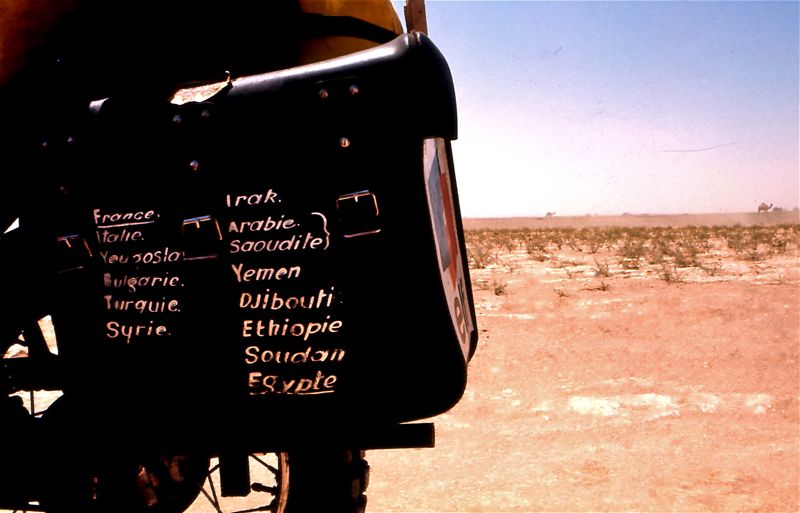 France.
Italie.
Yougosla
Bulgarie.
Turquie.
Syrie.
Irak.
Arabie.
Saoudite
Yemen
Djibouti
Ethiopie
Soudan
Egypte